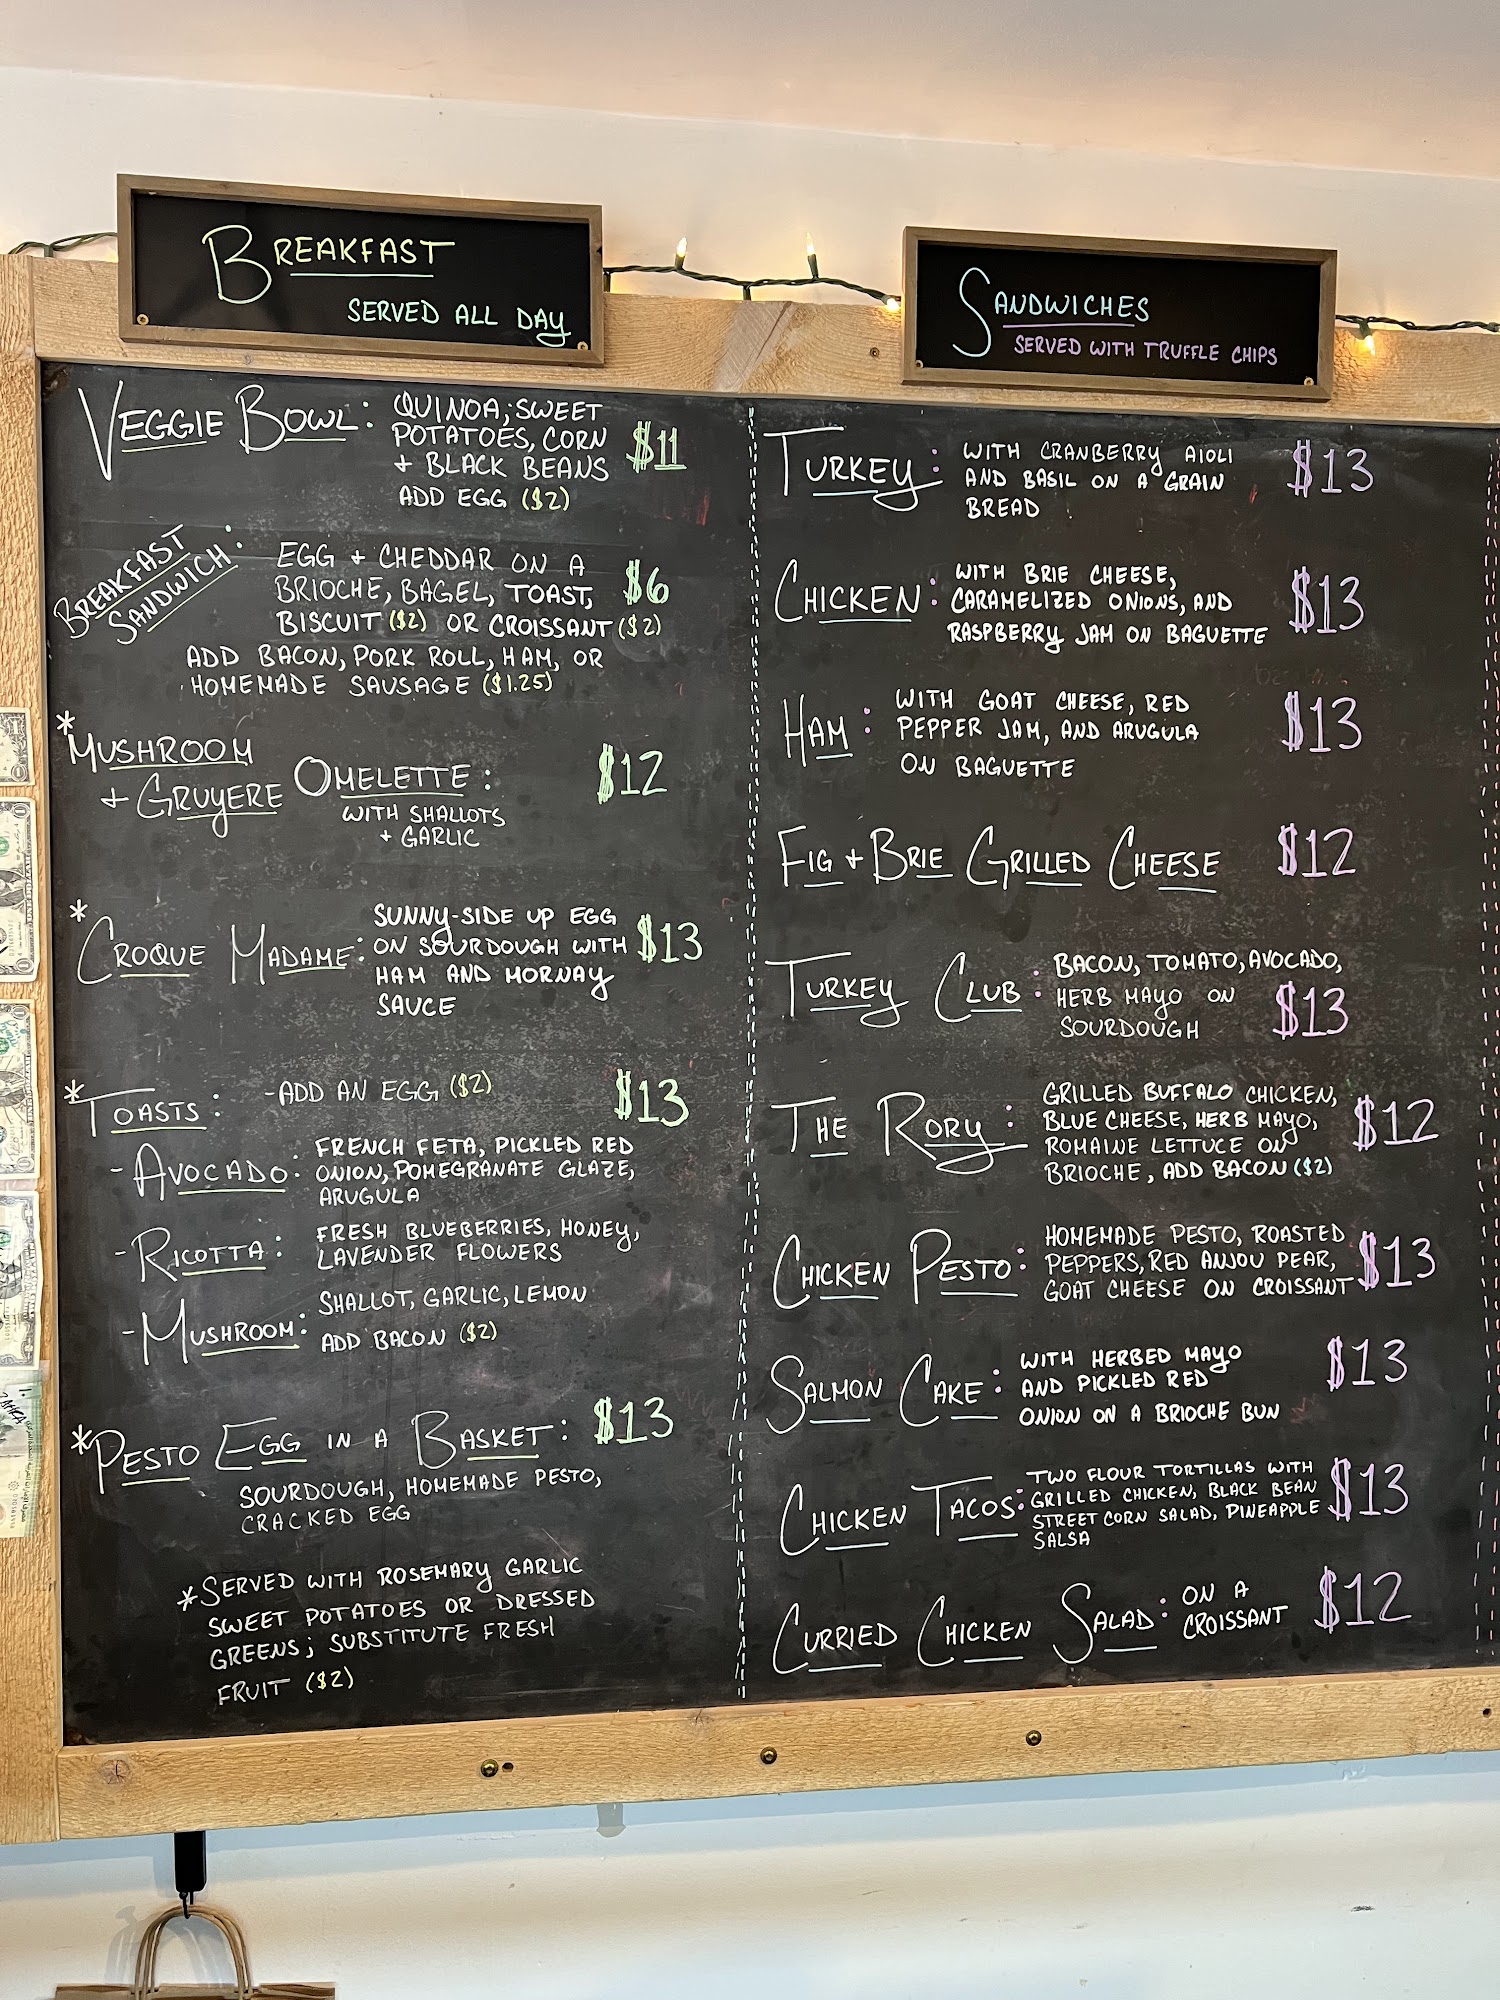 BREAKFAST
SERVED ALL DAY
VEGGIE BOWL: QUINOA, SWEET
POTATOES, CORN
+ BLACK BEANS
$11
ADD EGG ($2)
BREAKFAST
SANDWICH:
EGG + CHEDDAR ON A
BRIOCHE, BAGEL, TOAST,
$6
BISCUIT ($2) OR CROISSANT ($2)
ADD BACON, PORK ROLL, HAM, OR
HOMEMADE SAUSAGE ($1.25)
*MUSHROOM
+ GRUYERE OMELETTE:
$12
WITH SHALLOTS
+ GARLIC
*CROQUE MADAME:
SUNNY-SIDE UP EGG
ON SOURDOUGH WITH
$13
HAM AND MORNAY
SAUCE
*TOASTS: -ADD AN EGG ($2) $13
-AVOCADO: FRENCH FETA, PICKLED RED
ONION, POMEGRANATE GLAZE,
ARUGULA
-RICOTTA: FRESH BLUEBERRIES, HONEY,
LAVENDER FLOWERS
-MUSHROOM: SHALLOT, GARLIC, LEMON
ADD BACON ($2)
*PESTO EGG IN A BASKET: $13
SOURDOUGH, HOMEMADE PESTO,
CRACKED EGG
*SERVED WITH ROSEMARY GARLIC
SWEET POTATOES OR DRESSED
GREENS; SUBSTITUTE FRESH
FRUIT ($2)
SANDWICHES
SERVED WITH TRUFFLE CHIPS
TURKEY: WITH CRANBERRY AIOLI
AND BASIL ON A GRAIN
BREAD
$13
CHICKEN: WITH BRIE CHEESE,
CARAMELIZED ONIONS, AND
RASPBERRY JAM ON BAGUETTE
$13
HAM: WITH GOAT CHEESE, RED
PEPPER JAM, AND ARUGULA
ON BAGUETTE
$13
FIG + BRIE GRILLED CHEESE $12
TURKEY CLUB: BACON, TOMATO, AVOCADO,
HERB MAYO ON
SOURDOUGH
$13
THE RORY: GRILLED BUFFALO CHICKEN,
BLUE CHEESE, HERB MAYO,
ROMAINE LETTUCE ON
BRIOCHE, ADD BACON ($2)
$12
CHICKEN PESTO: HOMEMADE PESTO, ROASTED
PEPPERS, RED ANJOU PEAR,
GOAT CHEESE ON CROISSANT
$13
SALMON CAKE: WITH HERBED MAYO
AND PICKLED RED
ONION ON A BRIOCHE BUN
$13
CHICKEN TACOS: TWO FLOUR TORTILLAS WITH
GRILLED CHICKEN, BLACK BEAN
STREET CORN SALAD, PINEAPPLE
SALSA
$13
CURRIED CHICKEN SALAD: ON A
CROISSANT
$12